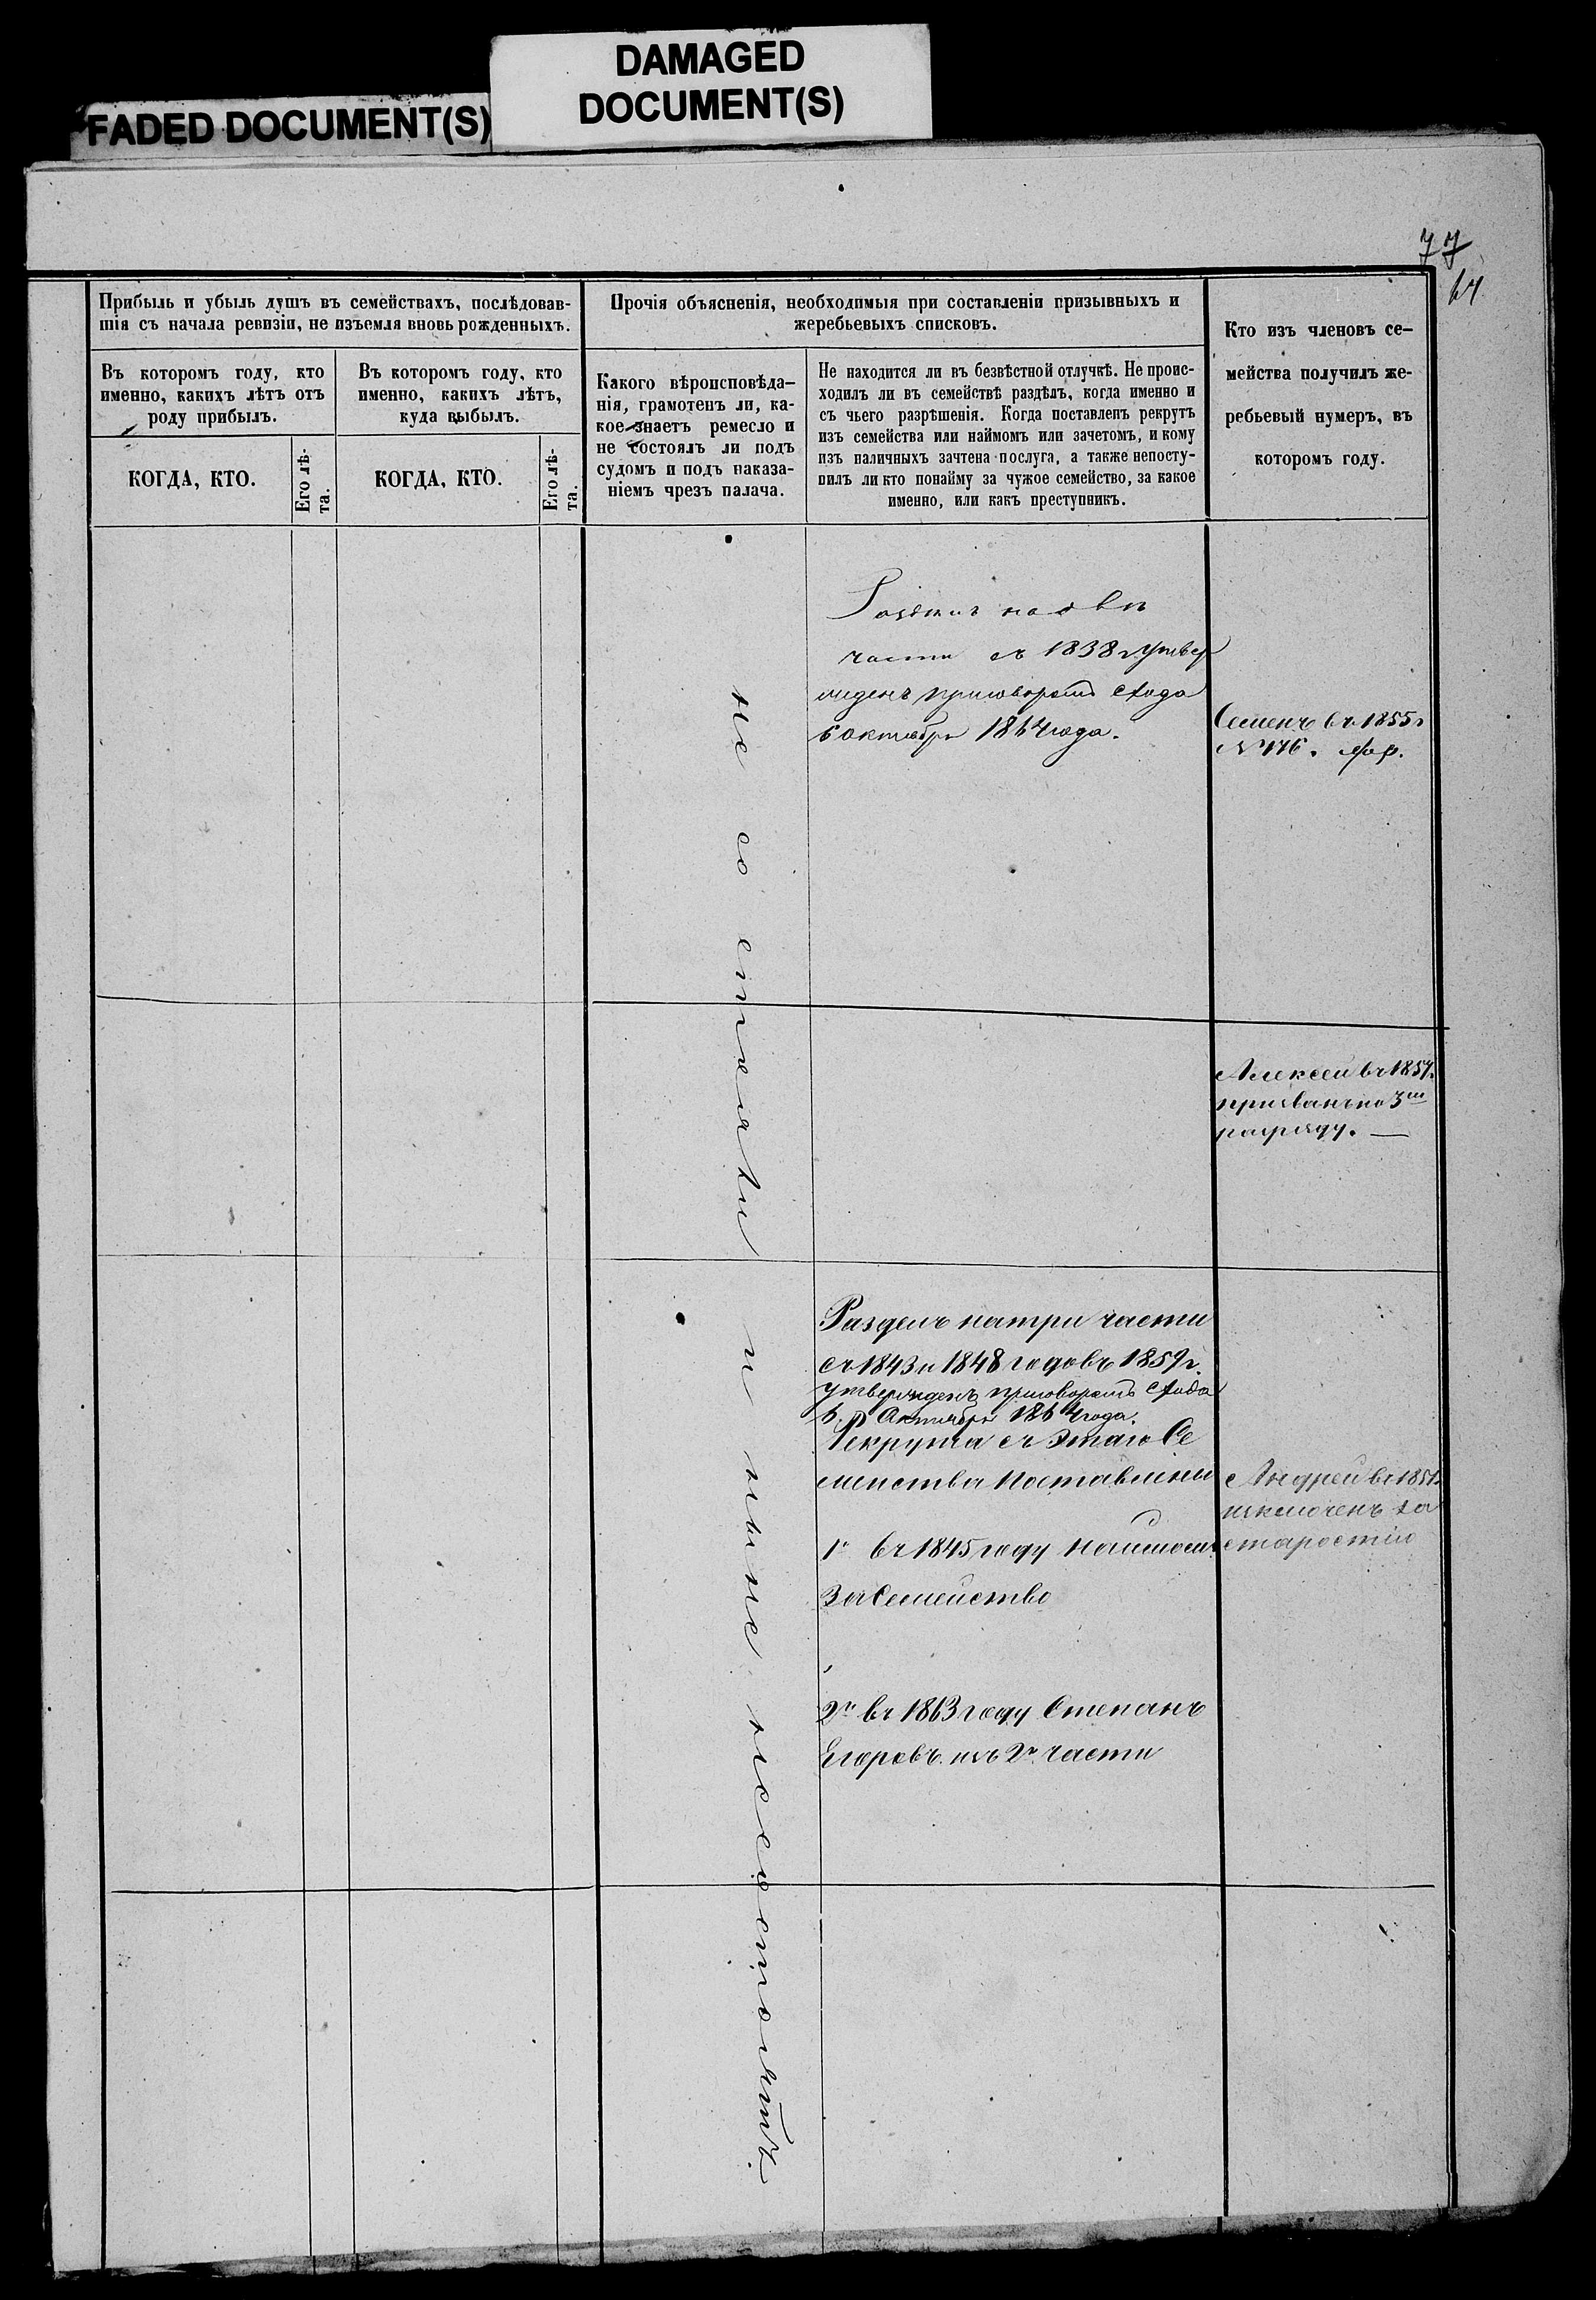 FADED DOCUMENT(S)
DAMAGED
DOCUMENT(S)
77
64
Прибыль и убыль душъ въ семействахъ, послѣдовав-
шія съ начала ревизіи, не изъемля вновь рожденныхъ.
Въ котoромъ году, кто
именно, какихъ лѣтъ отъ
роду прибылъ.
Въ которомъ году, кто
именно, какихъ лѣтъ,
куда выбылъ.
КОГДА, КТО.
Его лѣ-
та.
КОГДА, КТО.
Его лѣ-
та.
Прочія объясненія, необходимыя при составленіи призывныхъ и
жеребьевыхъ списковъ.
Какого вѣроисповѣда-
нія, грамотенъ ли, ка-
кое знаетъ ремесло и
не состоялъ ли подъ
судомъ и подъ наказа-
ніемъ чрезъ палача.
Не находится ли въ безвѣстной отлучкѣ. Не проис-
ходилъ ли въ семействѣ раздѣлъ, когда именно и
съ чьего разрѣшенія. Когда поставленъ рекрутъ
изъ семейства или наймомъ или зачетомъ, и кому
изъ наличныхъ зачтена послуга, а также непосту-
пилъ ли кто понайму за чужое семейство, за какое
именно, или какъ преступникъ.
Кто изъ членовъ се-
мейства получилъ же-
ребьевый нумеръ, въ
которомъ году.
не состояли и ныне несостоятъ
части съ 1838 г утвер
жденъ приговоромъ схода
6 октября 1864 года.
Семенъ въ 1855 г
№ 176.
Алексей въ 1857
призванъ по 3му
разряду. —
Разделъ натри части
съ 1843 и 1848 годовъ 1859 г.
утвержденъ приговоромъ схода
6 Октября 1864 года.
Рекрута съ этаго Се
мейства поставлены
1й въ 1845 году наймомъ
за Семейство
2й въ 1863 году Степанъ
Егоровъ изъ 2й части
Андрей въ 1857
исключенъ за
старостію